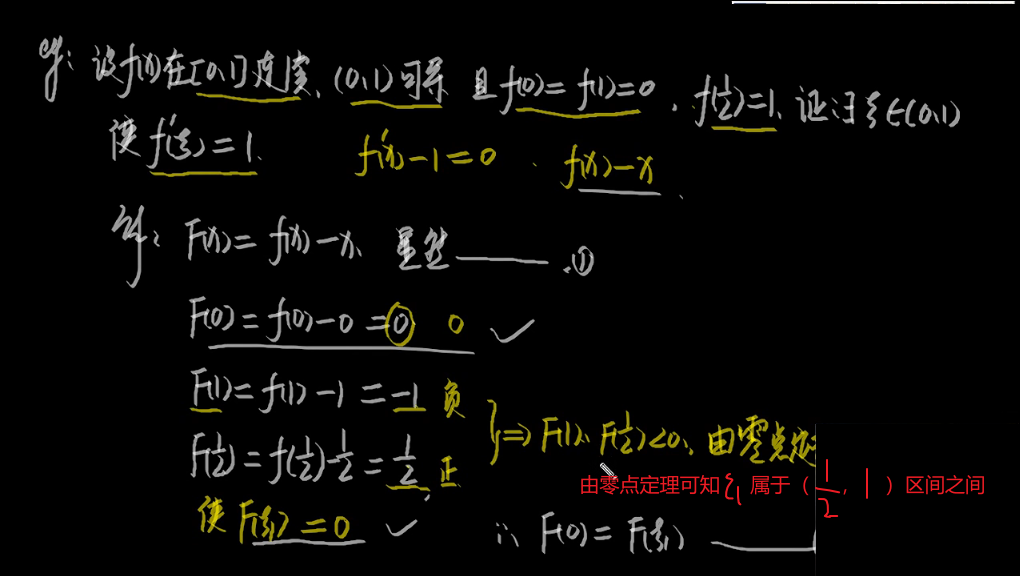 例：设f(x)在[0,1]连续、(0,1)可导 且f(0)=f(1)=0，f(1/2)=1. 证∃ξ∈(0,1)
使f'(ξ)=1. f'(x)-1=0 . f(x)-x
解：F(x)=f(x)-x. 显然 .①
F(0)=f(0)-0=0 0 ✓
F(1)=f(1)-1=-1 负
}⇒F(1)·F(1/2)<0, 由零点定
F(1/2)=f(1/2)-1/2=1/2 正
由零点定理可知ξ₁属于（1/2, 1）区间之间
使F(ξ₁)=0 ✓ ∴ F(0)=F(ξ₁)